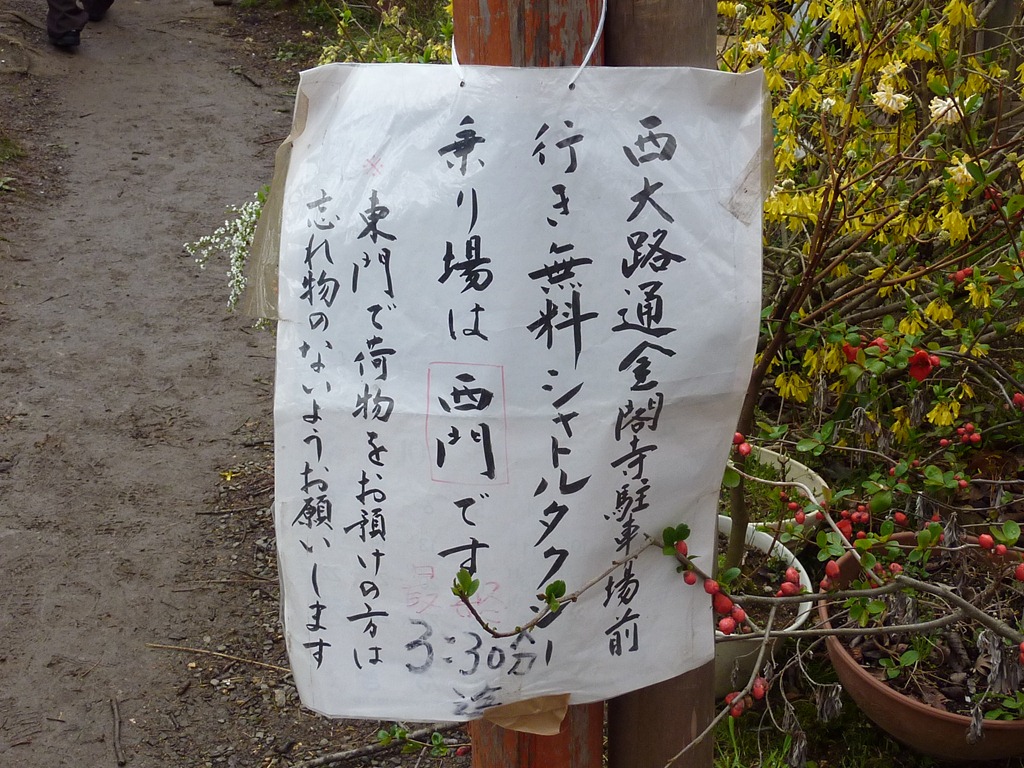 西大路通金閣寺駐車場前
行き無料シャトルタクシー
乗り場は西門です
最終
3:30分
迄
※東門で荷物をお預けの方は
忘れ物のないようお願いします